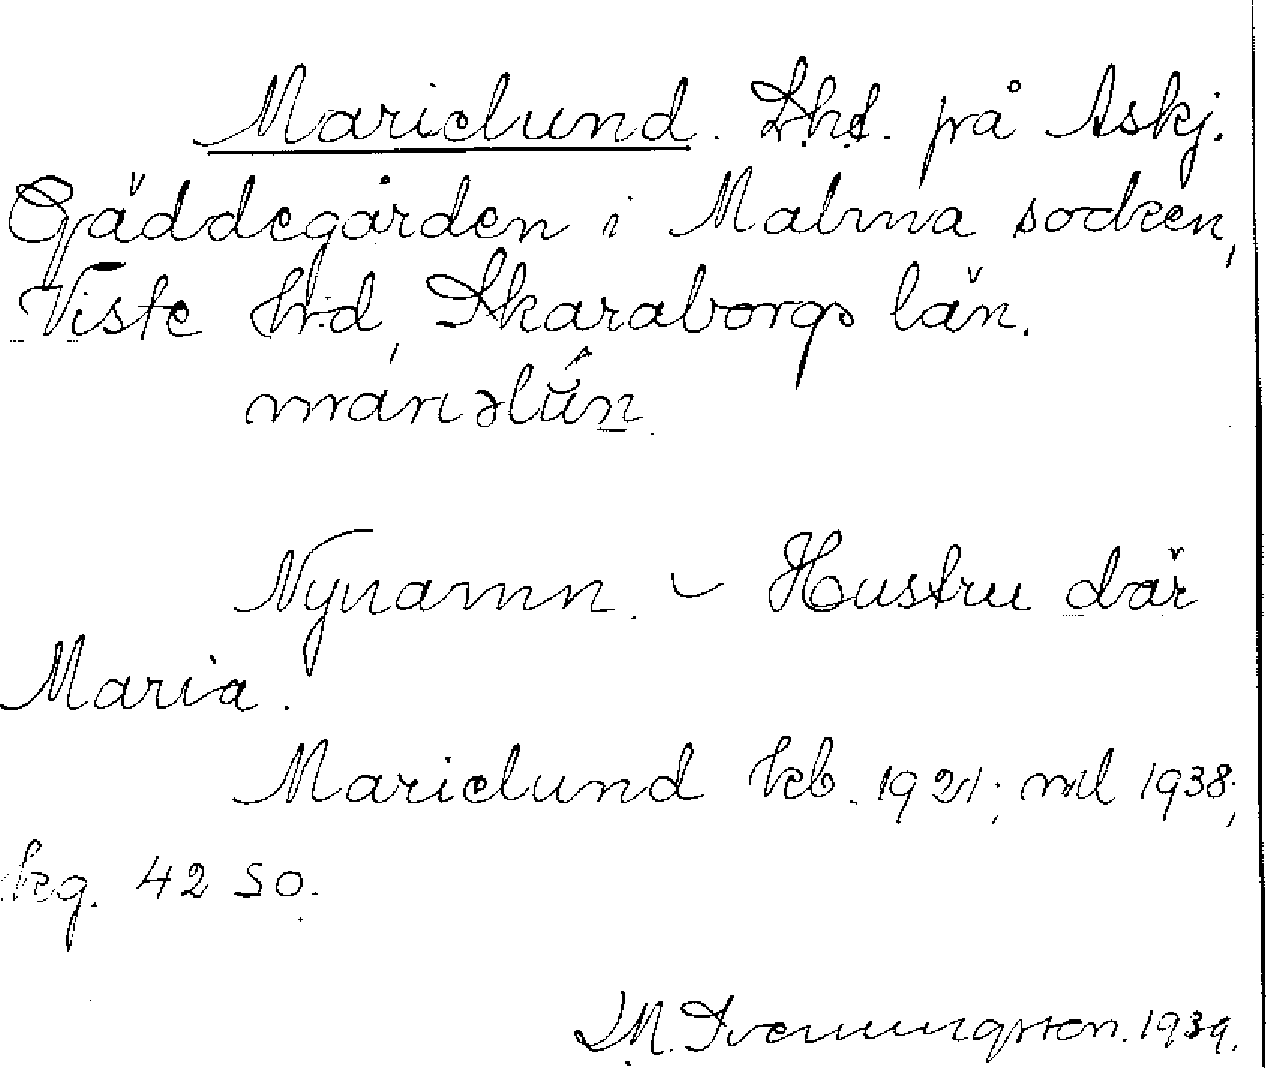 Marielund. Lht. på Askj.
Gäddegården i Malma socken,
Viste hd, Skaraborgs län.
Nynamn. – Hustru där
Maria.
Marielund kb. 1921; ml 1938;
kg. 42 SO.
1939.